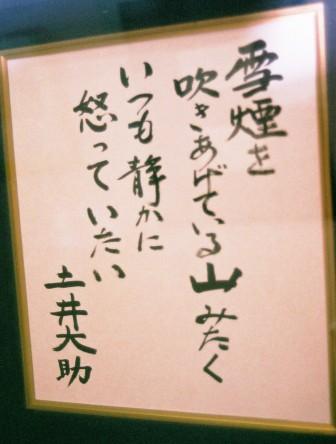 雪煙を
吹きあげている山みたく
いつも静かに
怒っていたい
土井大助